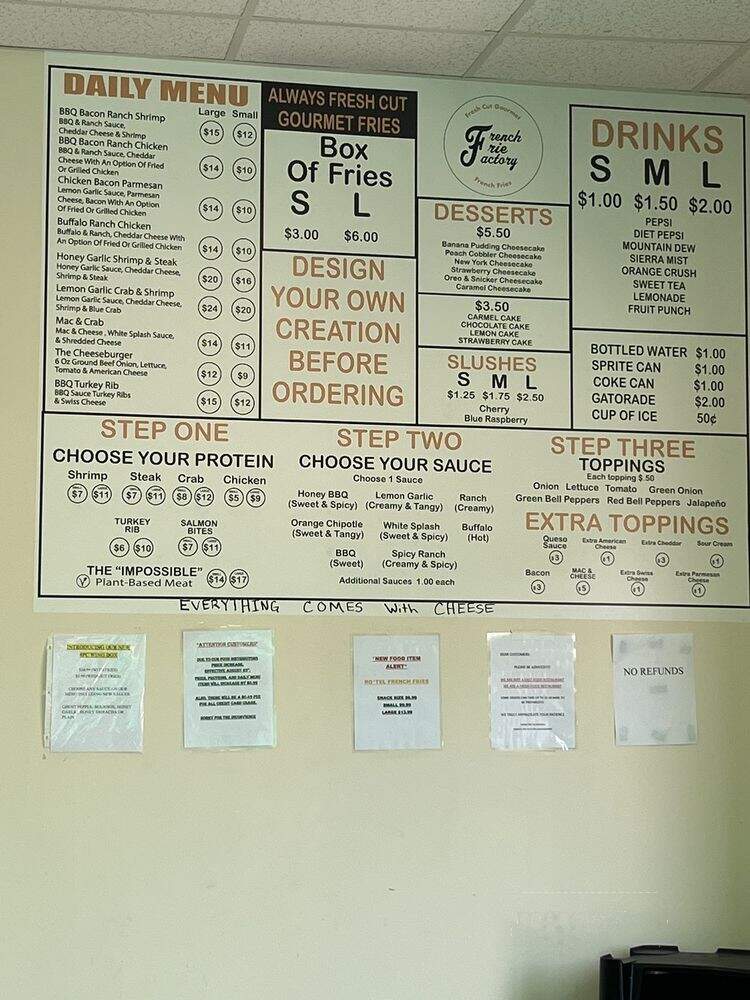 DAILY MENU
Large Small
BBQ Bacon Ranch Shrimp
BBQ & Ranch Sauce,
Cheddar Cheese & Shrimp
$15 $12
BBQ Bacon Ranch Chicken
BBQ & Ranch Sauce, Cheddar
Cheese With An Option Of Fried
Or Grilled Chicken
$14 $10
Chicken Bacon Parmesan
Lemon Garlic Sauce, Parmesan
Cheese, Bacon With An Option
Of Fried Or Grilled Chicken
$14 $10
Buffalo Ranch Chicken
Buffalo & Ranch, Cheddar Cheese With
An Option Of Fried Or Grilled Chicken
$14 $10
Honey Garlic Shrimp & Steak
Honey Garlic Sauce, Cheddar Cheese,
Shrimp & Steak
$20 $16
Lemon Garlic Crab & Shrimp
Lemon Garlic Sauce, Cheddar Cheese,
Shrimp & Blue Crab
$24 $20
Mac & Crab
Mac & Cheese, White Splash Sauce,
& Shredded Cheese
$14 $11
The Cheeseburger
6 Oz Ground Beef Onion, Lettuce,
Tomato & American Cheese
$12 $9
BBQ Turkey Rib
BBQ Sauce Turkey Ribs
& Swiss Cheese
$15 $12
ALWAYS FRESH CUT
GOURMET FRIES
Box
Of Fries
S L
$3.00 $6.00
DESIGN
YOUR OWN
CREATION
BEFORE
ORDERING
Fresh Cut Gourmet
French
Frie
Factory
French Fries
DESSERTS
$5.50
Banana Pudding Cheesecake
Peach Cobbler Cheesecake
New York Cheesecake
Strawberry Cheesecake
Oreo & Snicker Cheesecake
Caramel Cheesecake
$3.50
CARMEL CAKE
CHOCOLATE CAKE
LEMON CAKE
STRAWBERRY CAKE
SLUSHES
S M L
$1.25 $1.75 $2.50
Cherry
Blue Raspberry
DRINKS
S M L
$1.00 $1.50 $2.00
PEPSI
DIET PEPSI
MOUNTAIN DEW
SIERRA MIST
ORANGE CRUSH
SWEET TEA
LEMONADE
FRUIT PUNCH
BOTTLED WATER $1.00
SPRITE CAN $1.00
COKE CAN $1.00
GATORADE $2.00
CUP OF ICE 50¢
STEP ONE
CHOOSE YOUR PROTEIN
Shrimp Steak Crab Chicken
$7 $11 $7 $11 $8 $12 $5 $9
TURKEY
RIB
$6 $10
SALMON
BITES
$7 $11
THE "IMPOSSIBLE"
V Plant-Based Meat
$14 $17
STEP TWO
CHOOSE YOUR SAUCE
Choose 1 Sauce
Honey BBQ
(Sweet & Spicy)
Lemon Garlic
(Creamy & Tangy)
Ranch
(Creamy)
Orange Chipotle
(Sweet & Tangy)
White Splash
(Sweet & Spicy)
Buffalo
(Hot)
BBQ
(Sweet)
Spicy Ranch
(Creamy & Spicy)
Additional Sauces 1.00 each
STEP THREE
TOPPINGS
Each topping $.50
Onion Lettuce Tomato Green Onion
Green Bell Peppers Red Bell Peppers Jalapeño
EXTRA TOPPINGS
Queso
Sauce
$3
Extra American
Cheese
$1
Extra Cheddar
$3
Sour Cream
$1
Bacon
$3
MAC &
CHEESE
$5
Extra Swiss
Cheese
$1
Extra Parmesan
Cheese
$1
EVERYTHING COMES With CHEESE
INTRODUCING OUR NEW
6PC WING BOX
"ATTENTION CUSTOMERS"
DUE TO OUR FOOD DISTRIBUTORS
PRICE INCREASE,
SORRY FOR THE INCONVENIENCE
"NEW FOOD ITEM
ALERT"
RO'TEL FRENCH FRIES
SNACK SIZE $6.99
SMALL $9.99
LARGE $13.99
DEAR CUSTOMERS,
PLEASE BE ADVISED!!!!
WE TRULY APPRECIATE YOUR PATIENCE
NO REFUNDS